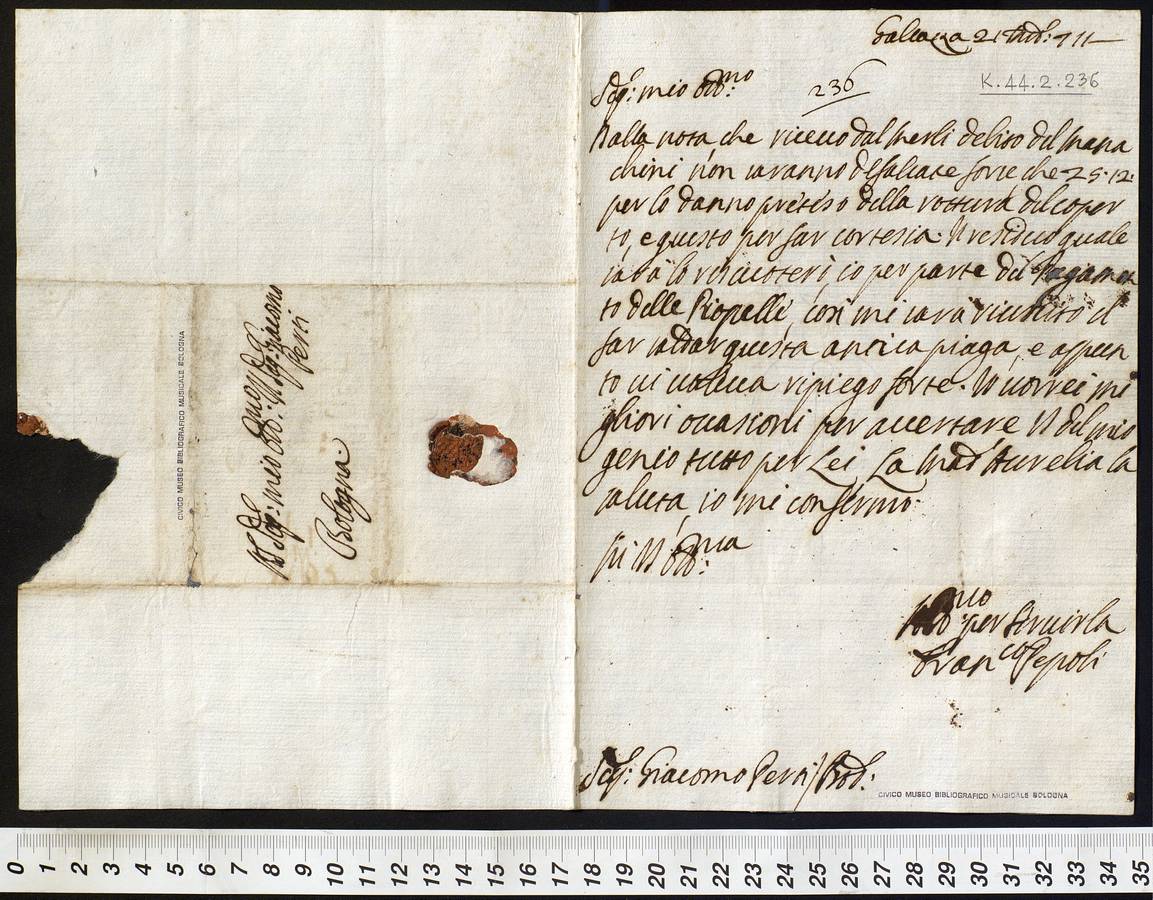 Galeazza 21 711
Sigr: mio Oss:mo
236
K.44.2.236
Dalla nota che ricevo dal Merli debito del Mana
chini non saranno defalcate forse che 25.12.
per lo danno preteso della rottura del coper
to, e questo per far cortesia. Il residuo quale
sarà lo riscuoterò io per parte del Pagamen
to delle Piopelle, così mi sarà riuscito il
far saldar questa antica piaga, e appun
to ci voleva ripiego forte. Io vorrei mi
gliori occasioni per accertare V. S. del mio
genio tutto per Lei. La Mad. Aurelia la
saluta, io mi confermo
Di V. S. Oss:ma
per servirla
Fran.co Pepoli
Sigr: Giacomo Perti Bol:
CIVICO MUSEO BIBLIOGRAFICO MUSICALE BOLOGNA
Al Sigr: mio Oss: Il Sigr: Giacomo
Perti
Bologna
CIVICO MUSEO BIBLIOGRAFICO MUSICALE BOLOGNA
0 1 2 3 4 5 6 7 8 9 10 11 12 13 14 15 16 17 18 19 20 21 22 23 24 25 26 27 28 29 30 31 32 33 34 35